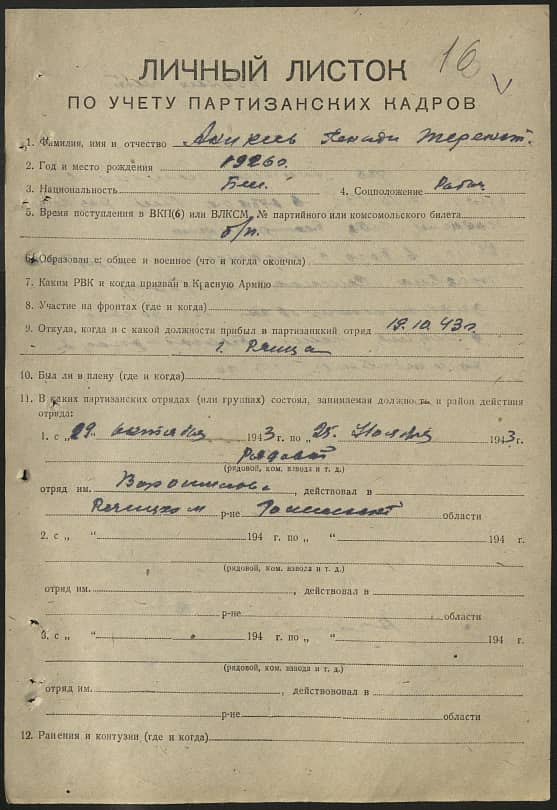 16
ЛИЧНЫЙ ЛИСТОК
ПО УЧЕТУ ПАРТИЗАНСКИХ КАДРОВ
1. Фамилия, имя и отчество
2. Год и место рождения 1926г.
3. Национальность Бел. 4. Соцположение Рабоч.
5. Время поступления в ВКП(б) или ВЛКСМ, № партийного или комсомольского билета
б/п.
6. Образование; общее и военное (что и когда окончил)
7. Каким РВК и когда призван в Красную Армию
8. Участие на фронтах (где и когда)
9. Откуда, когда и с какой должности прибыл в партизанкий отряд 19.10.43г.
г. Речица
10. Был ли в плену (где и когда)
11. В каких партизанских отрядах (или группах) состоял, занимаемая должность и район действия
отряда:
1. с „29“ октября 1943 г. по „25. Ноября 1943 г.
Рядовой
(рядовой, ком. взвода и т. д.)
отряд им. Ворошилова, действовал в
Речицком р-не Гомельской области
2. с „ “ 194 г. по „ “ 194 г.
(рядовой, ком. взвода и т. д.)
отряд им. , действовал в
р-не области
3. с „ “ 194 г. по „ “ 194 г.
(рядовой, ком. взвода и т. д.)
отряд им. , действовал в
р-не области
12. Ранения и контузии (где и когда)